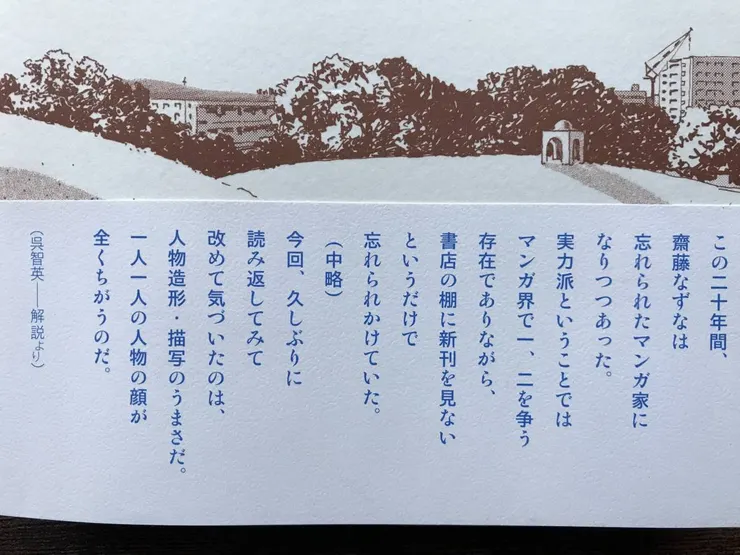 この二十年間、
齋藤なずなは
忘れられたマンガ家に
なりつつあった。
実力派ということでは
マンガ界で一、二を争う
存在でありながら、
書店の棚に新刊を見ない
というだけで
忘れられかけていた。
（中略）
今回、久しぶりに
読み返してみて
改めて気づいたのは、
人物造形・描写のうまさだ。
一人一人の人物の顔が
全くちがうのだ。
（呉智英――解説より）